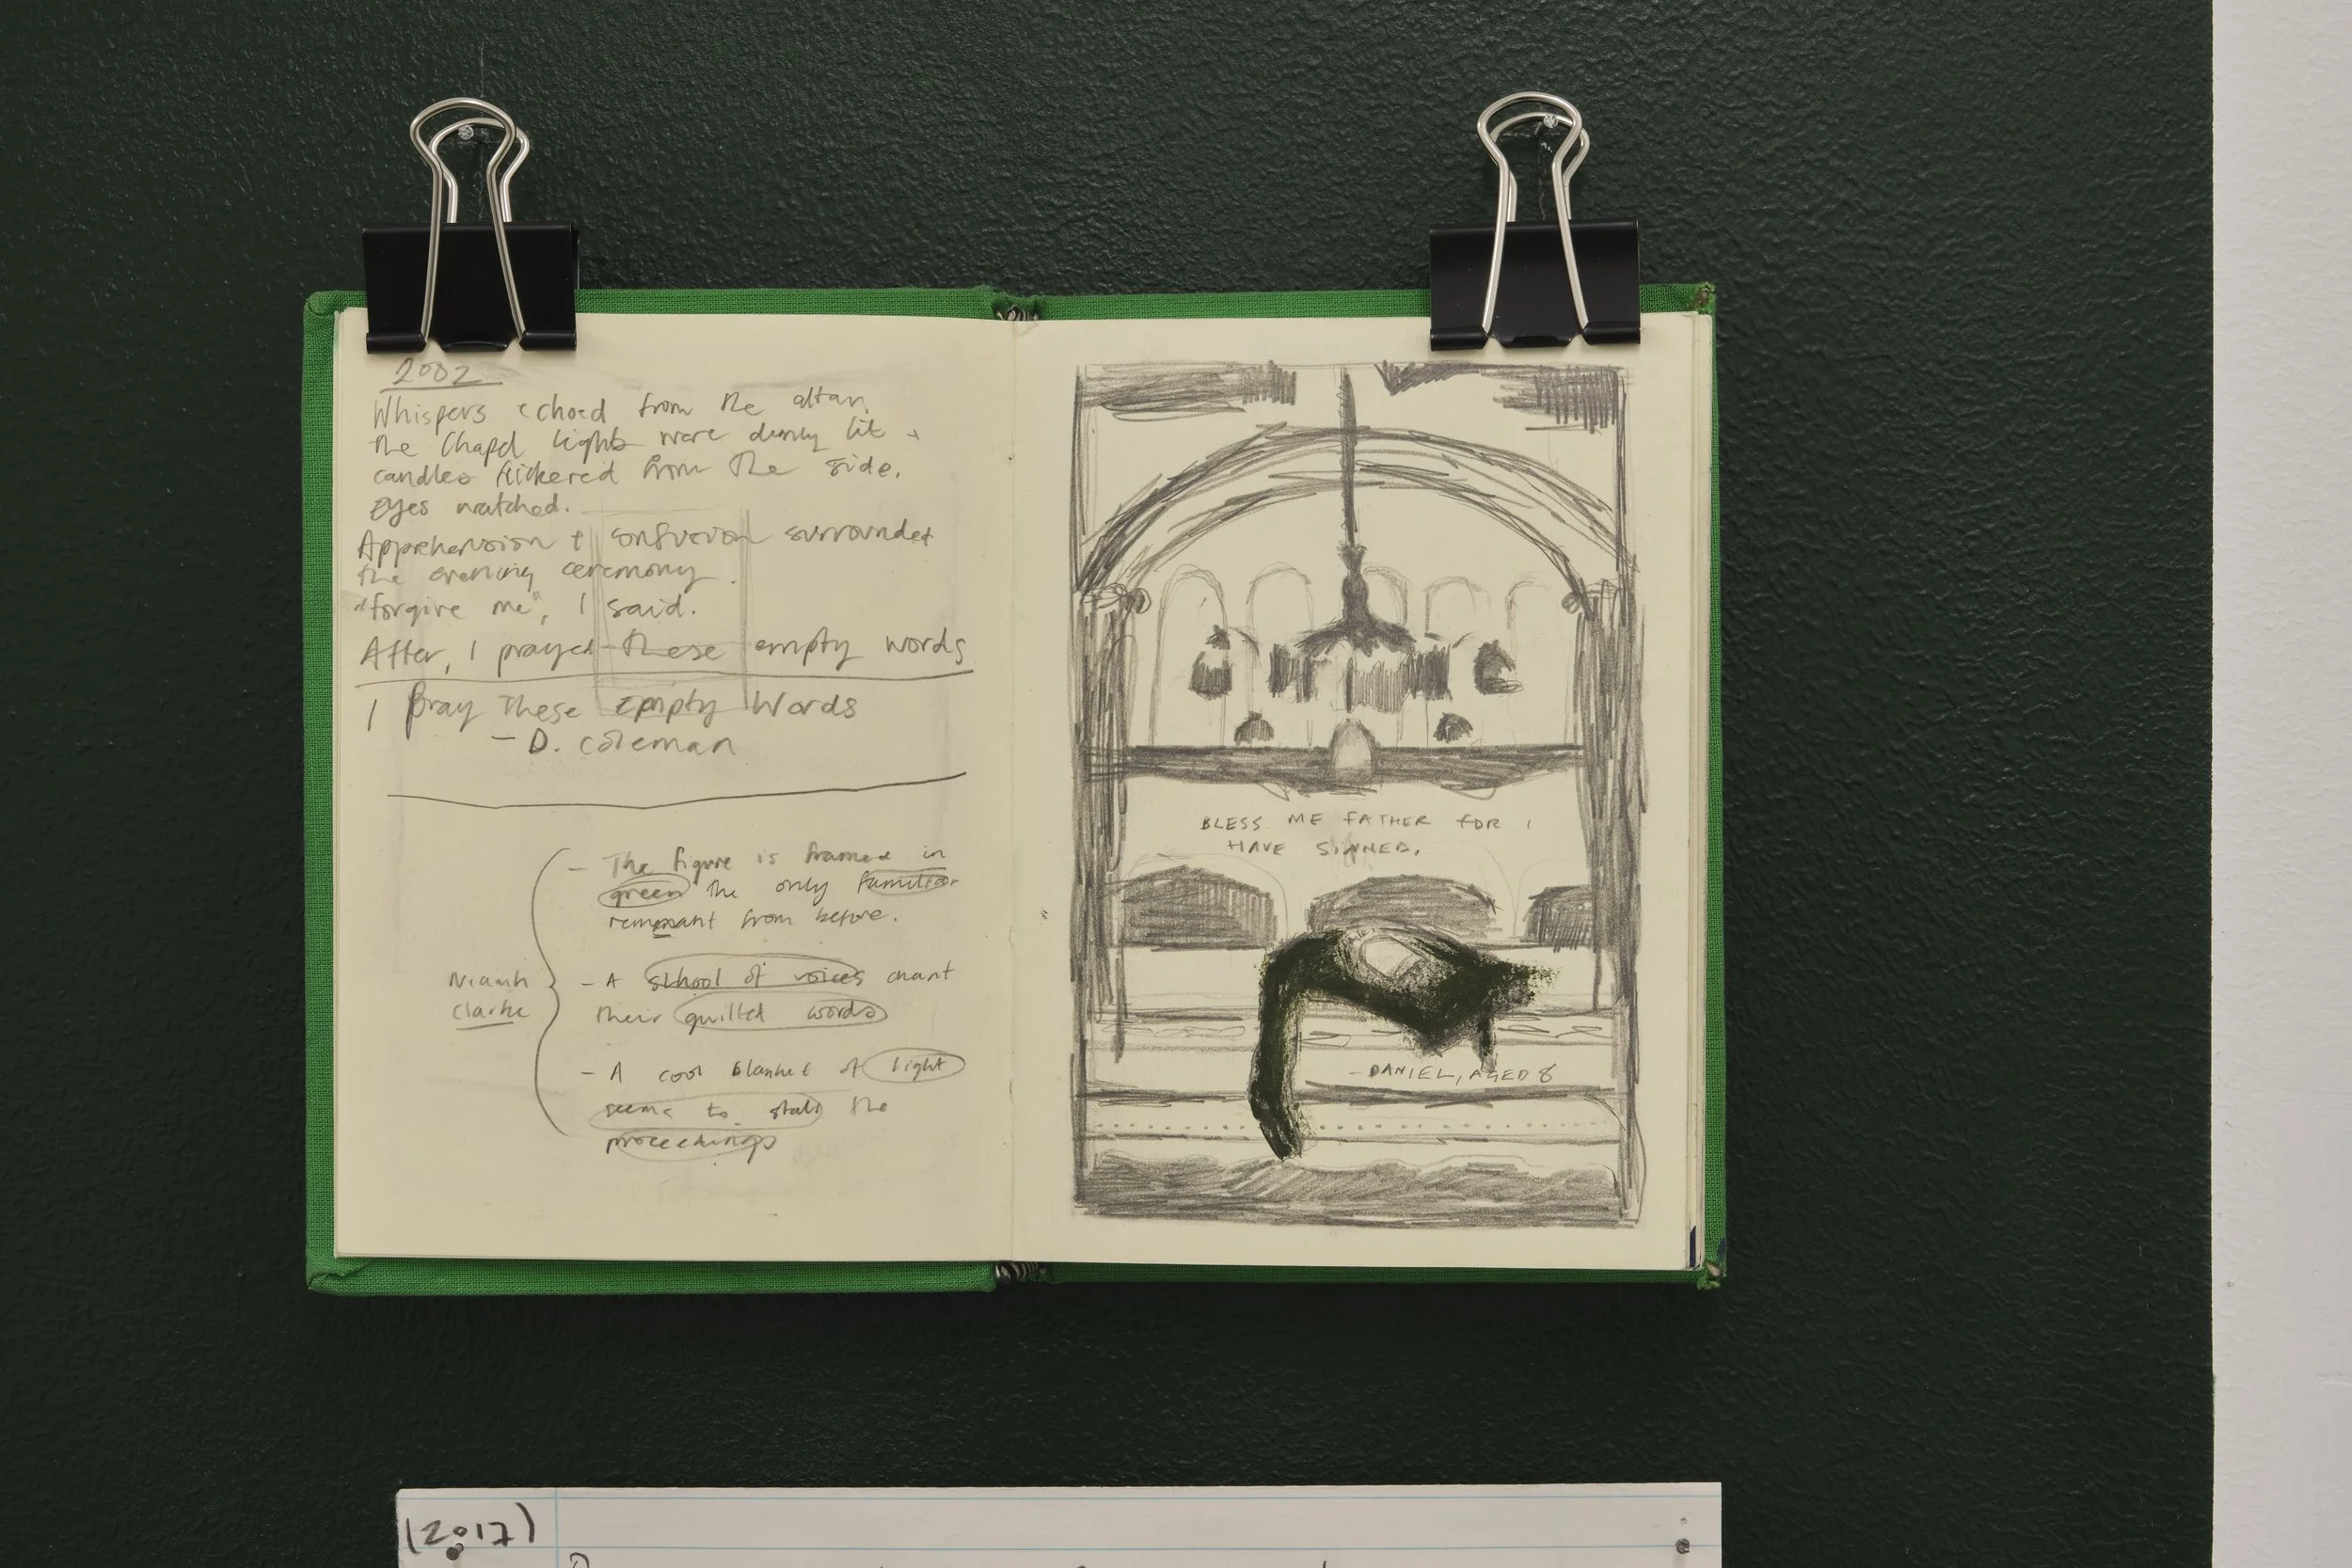 2002
Whispers echoed from the altar.
the Chapel lights were dimly lit +
candles flickered from the side.
Eyes watched.
Apprehension + confusion surrounded
the evening ceremony.
"forgive me", I said.
After, I prayed these empty words
I pray These Empty Words
- D. Coleman
- The figure is framed in
green the only familiar
remnant from before.
Niamh
Clarke
- A school of voices chant
their quilted words
- A cool blanket of light
seems to stall the
proceedings
BLESS ME FATHER FOR I
HAVE SINNED.
- DANIEL, AGED 8
(2017)